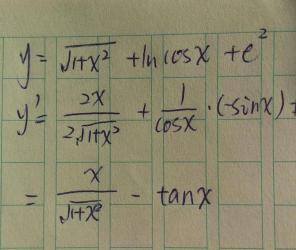 y = √(1+x²) + ln cosx + e²
y' = 2x / 2√(1+x²) + 1/cosx · (-sinx) +
= x / √(1+x²) - tanx